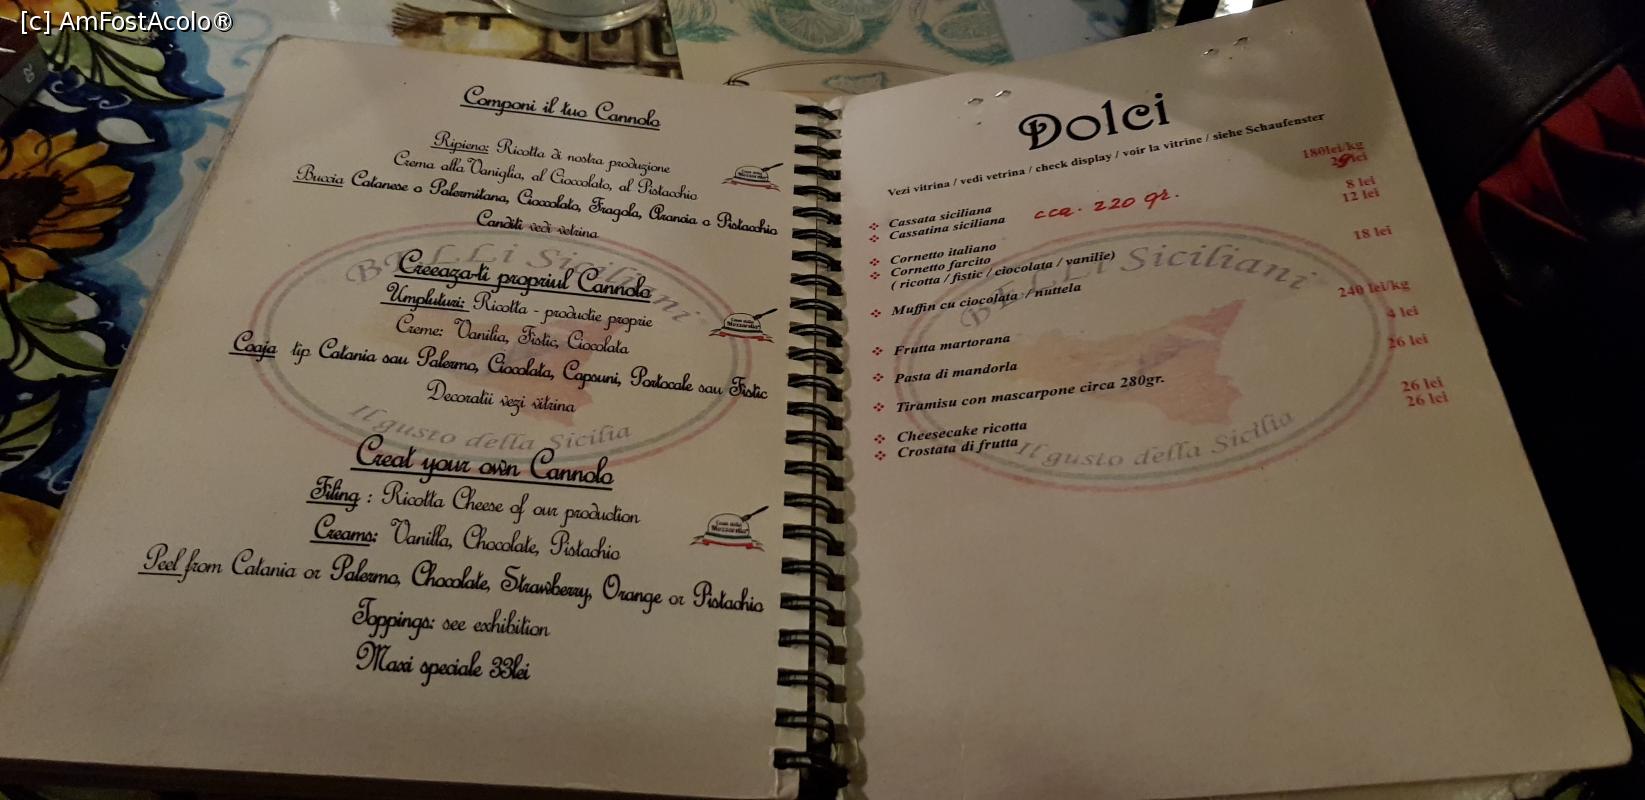 [c] AmFostAcolo®
Componi il tuo Cannolo
Ripieno: Ricotta di nostra produzione
Crema alla Vaniglia, al Cioccolato, al Pistacchio
Buccia Catanese o Palermitana, Cioccolato, Fragola, Arancia o Pistacchio
Canditi vedi vetrina
Creeaza-ti propriul Cannolo
Umpluturi: Ricotta - productie proprie
Creme: Vanilia, Fistic, Ciocolata
Coaja tip Catania sau Palermo, Ciocolata, Capsuni, Portocale sau Fistic
Decoratii vezi vitrina
Creat your own Cannolo
Filing : Ricotta Cheese of our production
Creams: Vanilla, Chocolate, Pistachio
Peel from Catania or Palermo, Chocolate, Strawberry, Orange or Pistachio
Toppings: see exhibition
Maxi speciale 33lei
BELLi Siciliani
Il gusto della Sicilia
Dolci
Vezi vitrina / vedi vetrina / check display / voir la vitrine / siehe Schaufenster
Cassata siciliana 180lei/kg
Cassatina siciliana cca. 220 gr. lei
Cornetto italiano 8 lei
Cornetto farcito 12 lei
( ricotta / fistic / ciocolata / vanilie)
Muffin cu ciocolata / nuttela 18 lei
Frutta martorana 240 lei/kg
Pasta di mandorla 4 lei
Tiramisu con mascarpone circa 280gr. 26 lei
Cheesecake ricotta 26 lei
Crostata di frutta 26 lei
BELLi Siciliani
Il gusto della Sicilia